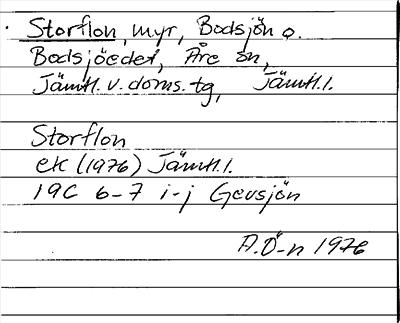 Storflon, myr, Bodsjön o.
Bodsjöedet, Åre sn,
Jämtl. v. doms. tg, Jämtl. l.
Storflon
ek (1976) Jämtl. l.
19C 6-7 i-j Gevsjön
A.Ö-n 1976